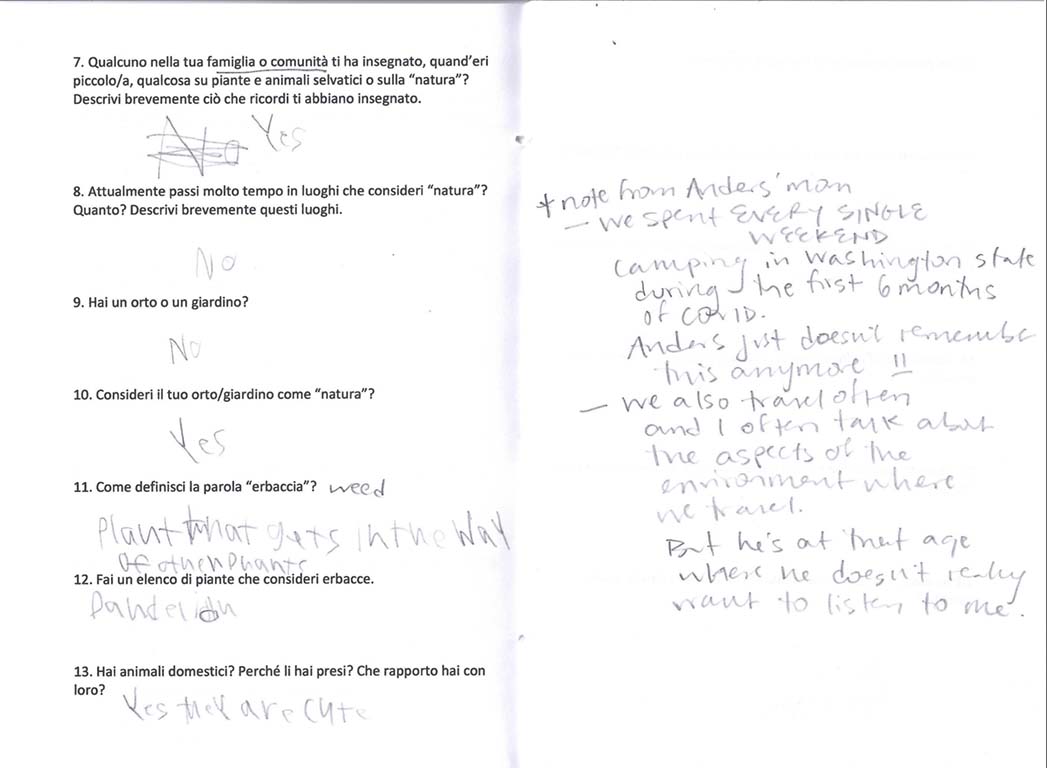 7. Qualcuno nella tua famiglia o comunità ti ha insegnato, quand'eri
piccolo/a, qualcosa su piante e animali selvatici o sulla “natura”?
Descrivi brevemente ciò che ricordi ti abbiano insegnato.
No Yes
8. Attualmente passi molto tempo in luoghi che consideri “natura”?
Quanto? Descrivi brevemente questi luoghi.
No
9. Hai un orto o un giardino?
No
10. Consideri il tuo orto/giardino come “natura”?
Yes
11. Come definisci la parola “erbaccia”? weed
Plant that gets in the way
OF other Plants
12. Fai un elenco di piante che consideri erbacce.
Dandelion
13. Hai animali domestici? Perché li hai presi? Che rapporto hai con
loro?
Yes they are cute
* note from Anders' mom
— we spent EVERY SINGLE
WEEKEND
camping in Washington state
during the first 6 months
of COVID.
Anders just doesn't remember
this anymore !!
— we also travel often
and I often talk about
the aspects of the
environment where
we travel.
But he's at that age
where he doesn't really
want to listen to me.